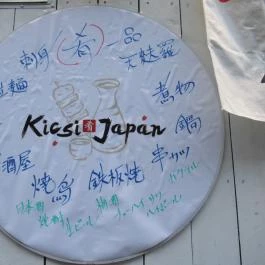 刺身 肴 一品
拉麺 天麩羅
煮物
Kicsi 肴 Japan
鍋
居酒屋 焼鳥 鉄板焼 串カツ
日本酒 焼酎 生ビール 梅酒 チューハイ サワー ハイボール カクテル